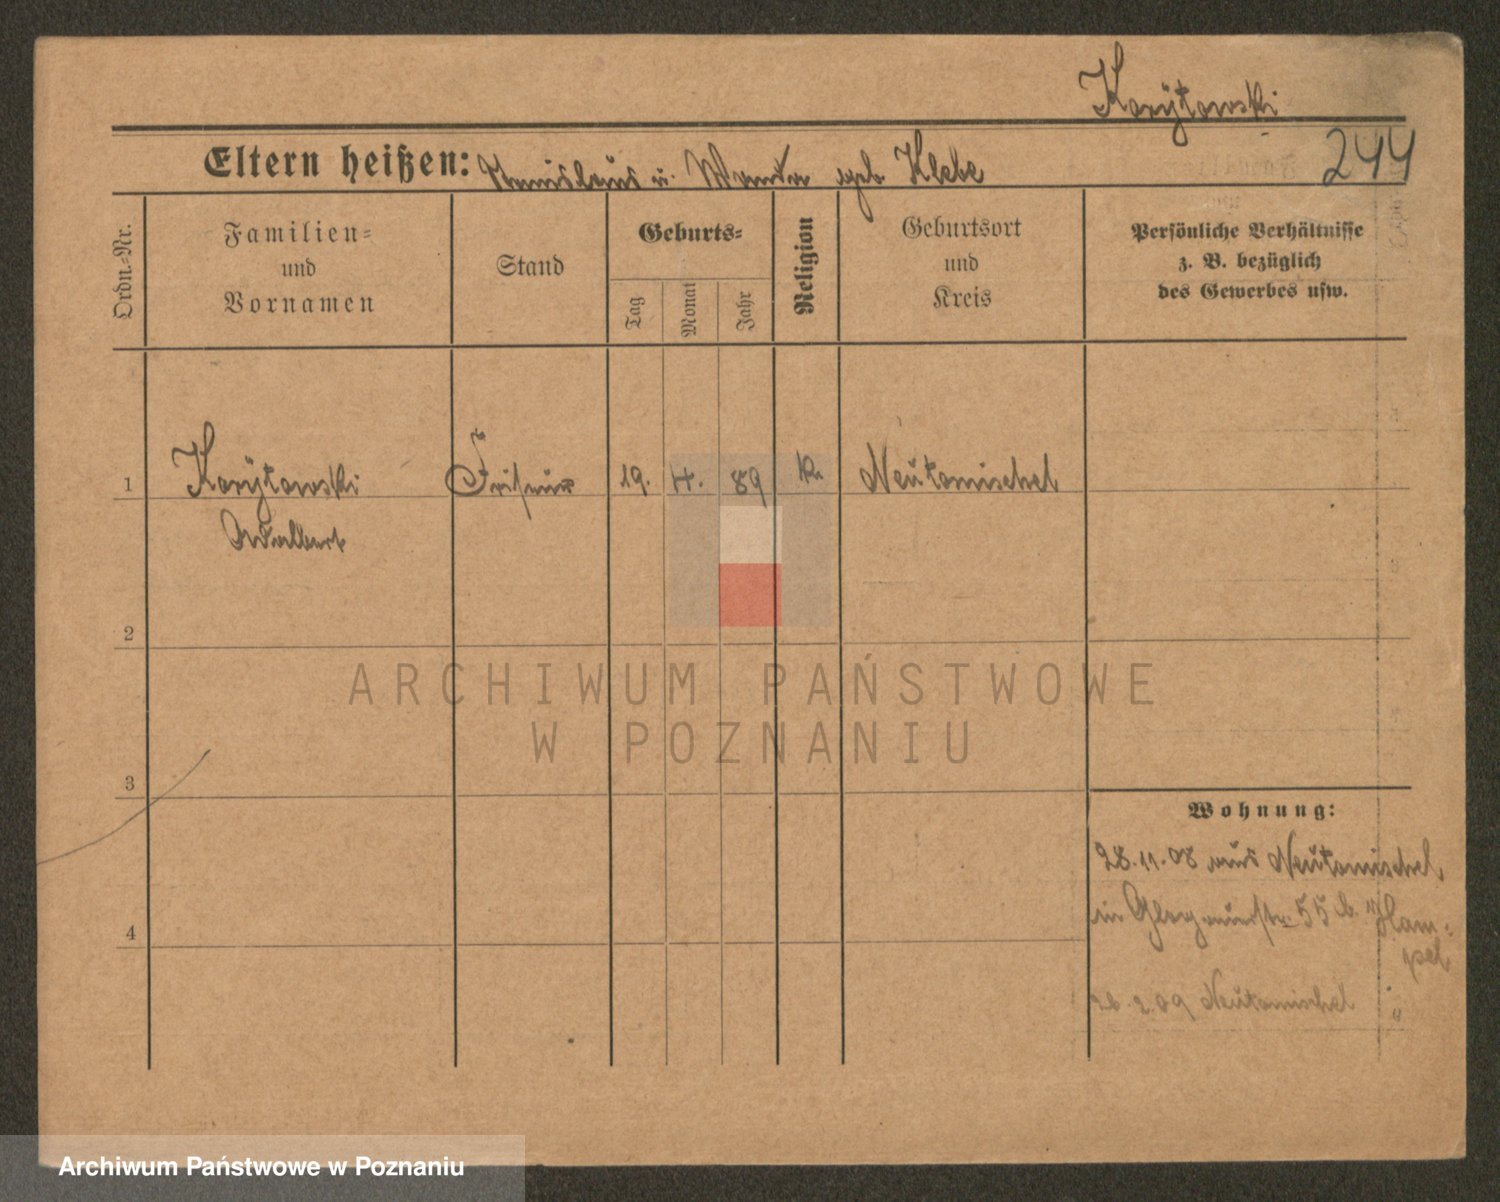 Korÿtowski
244
Eltern heißen: Stanislaus u. Wanda geb. Klebe
Ordn.-Nr.
Familien-
und
Vornamen
Stand
Geburts-
Tag
Monat
Jahr
Religion
Geburtsort
und
Kreis
Persönliche Verhältnisse
z. B. bezüglich
des Gewerbes usw.
1 Korÿtowski Friseur 19. 4. 89 k. Neutomischel
Adalbert
2
3
4
Wohnung:
28.11.08 aus Neutomischel
in 55 b. Ham-
pel
26.2.09 Neutomischel
ARCHIWUM PAŃSTWOWE
W POZNANIU
Archiwum Państwowe w Poznaniu